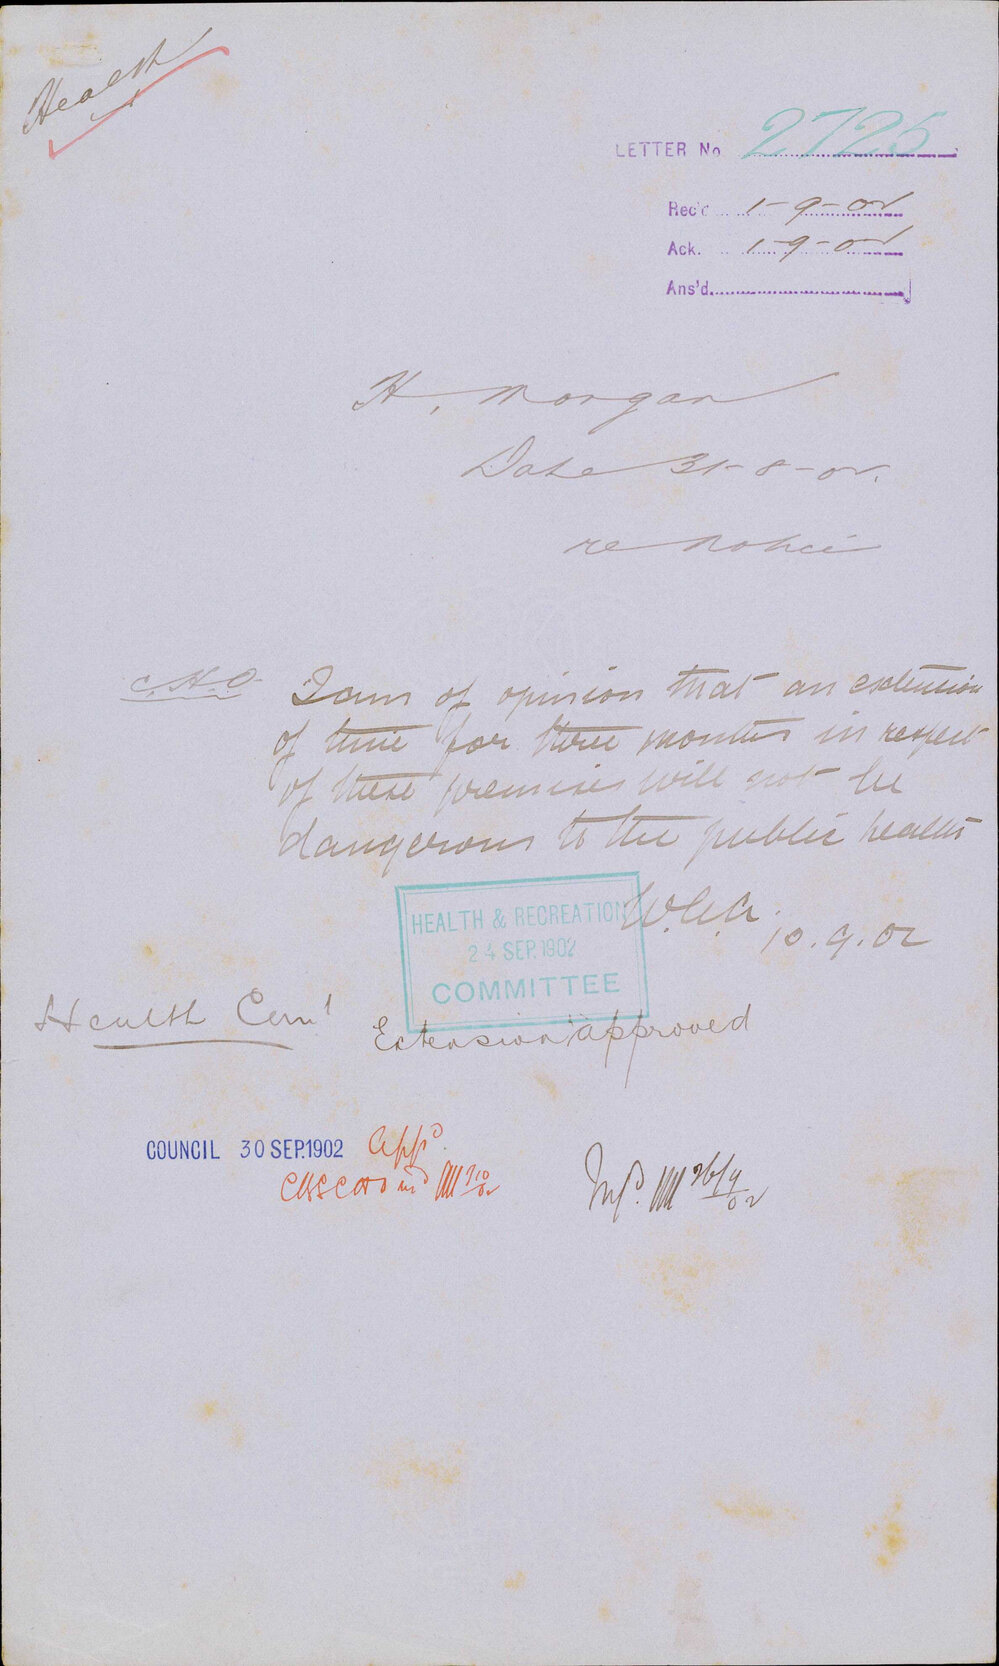 Health
LETTER No 2725
Rec'd 1-9-02
Ack. 1-9-02
Ans'd.
H. Morgan
Date 31-8-02.
re Notice
C.H.O. I am of opinion that an extension
of time for three months in respect
of these premises will not be
dangerous to the public health
HEALTH & RECREATION
24 SEP. 1902
COMMITTEE
10.9.02
Health Com'
Extension approved
COUNCIL 30 SEP. 1902 App'd.
26/9/02